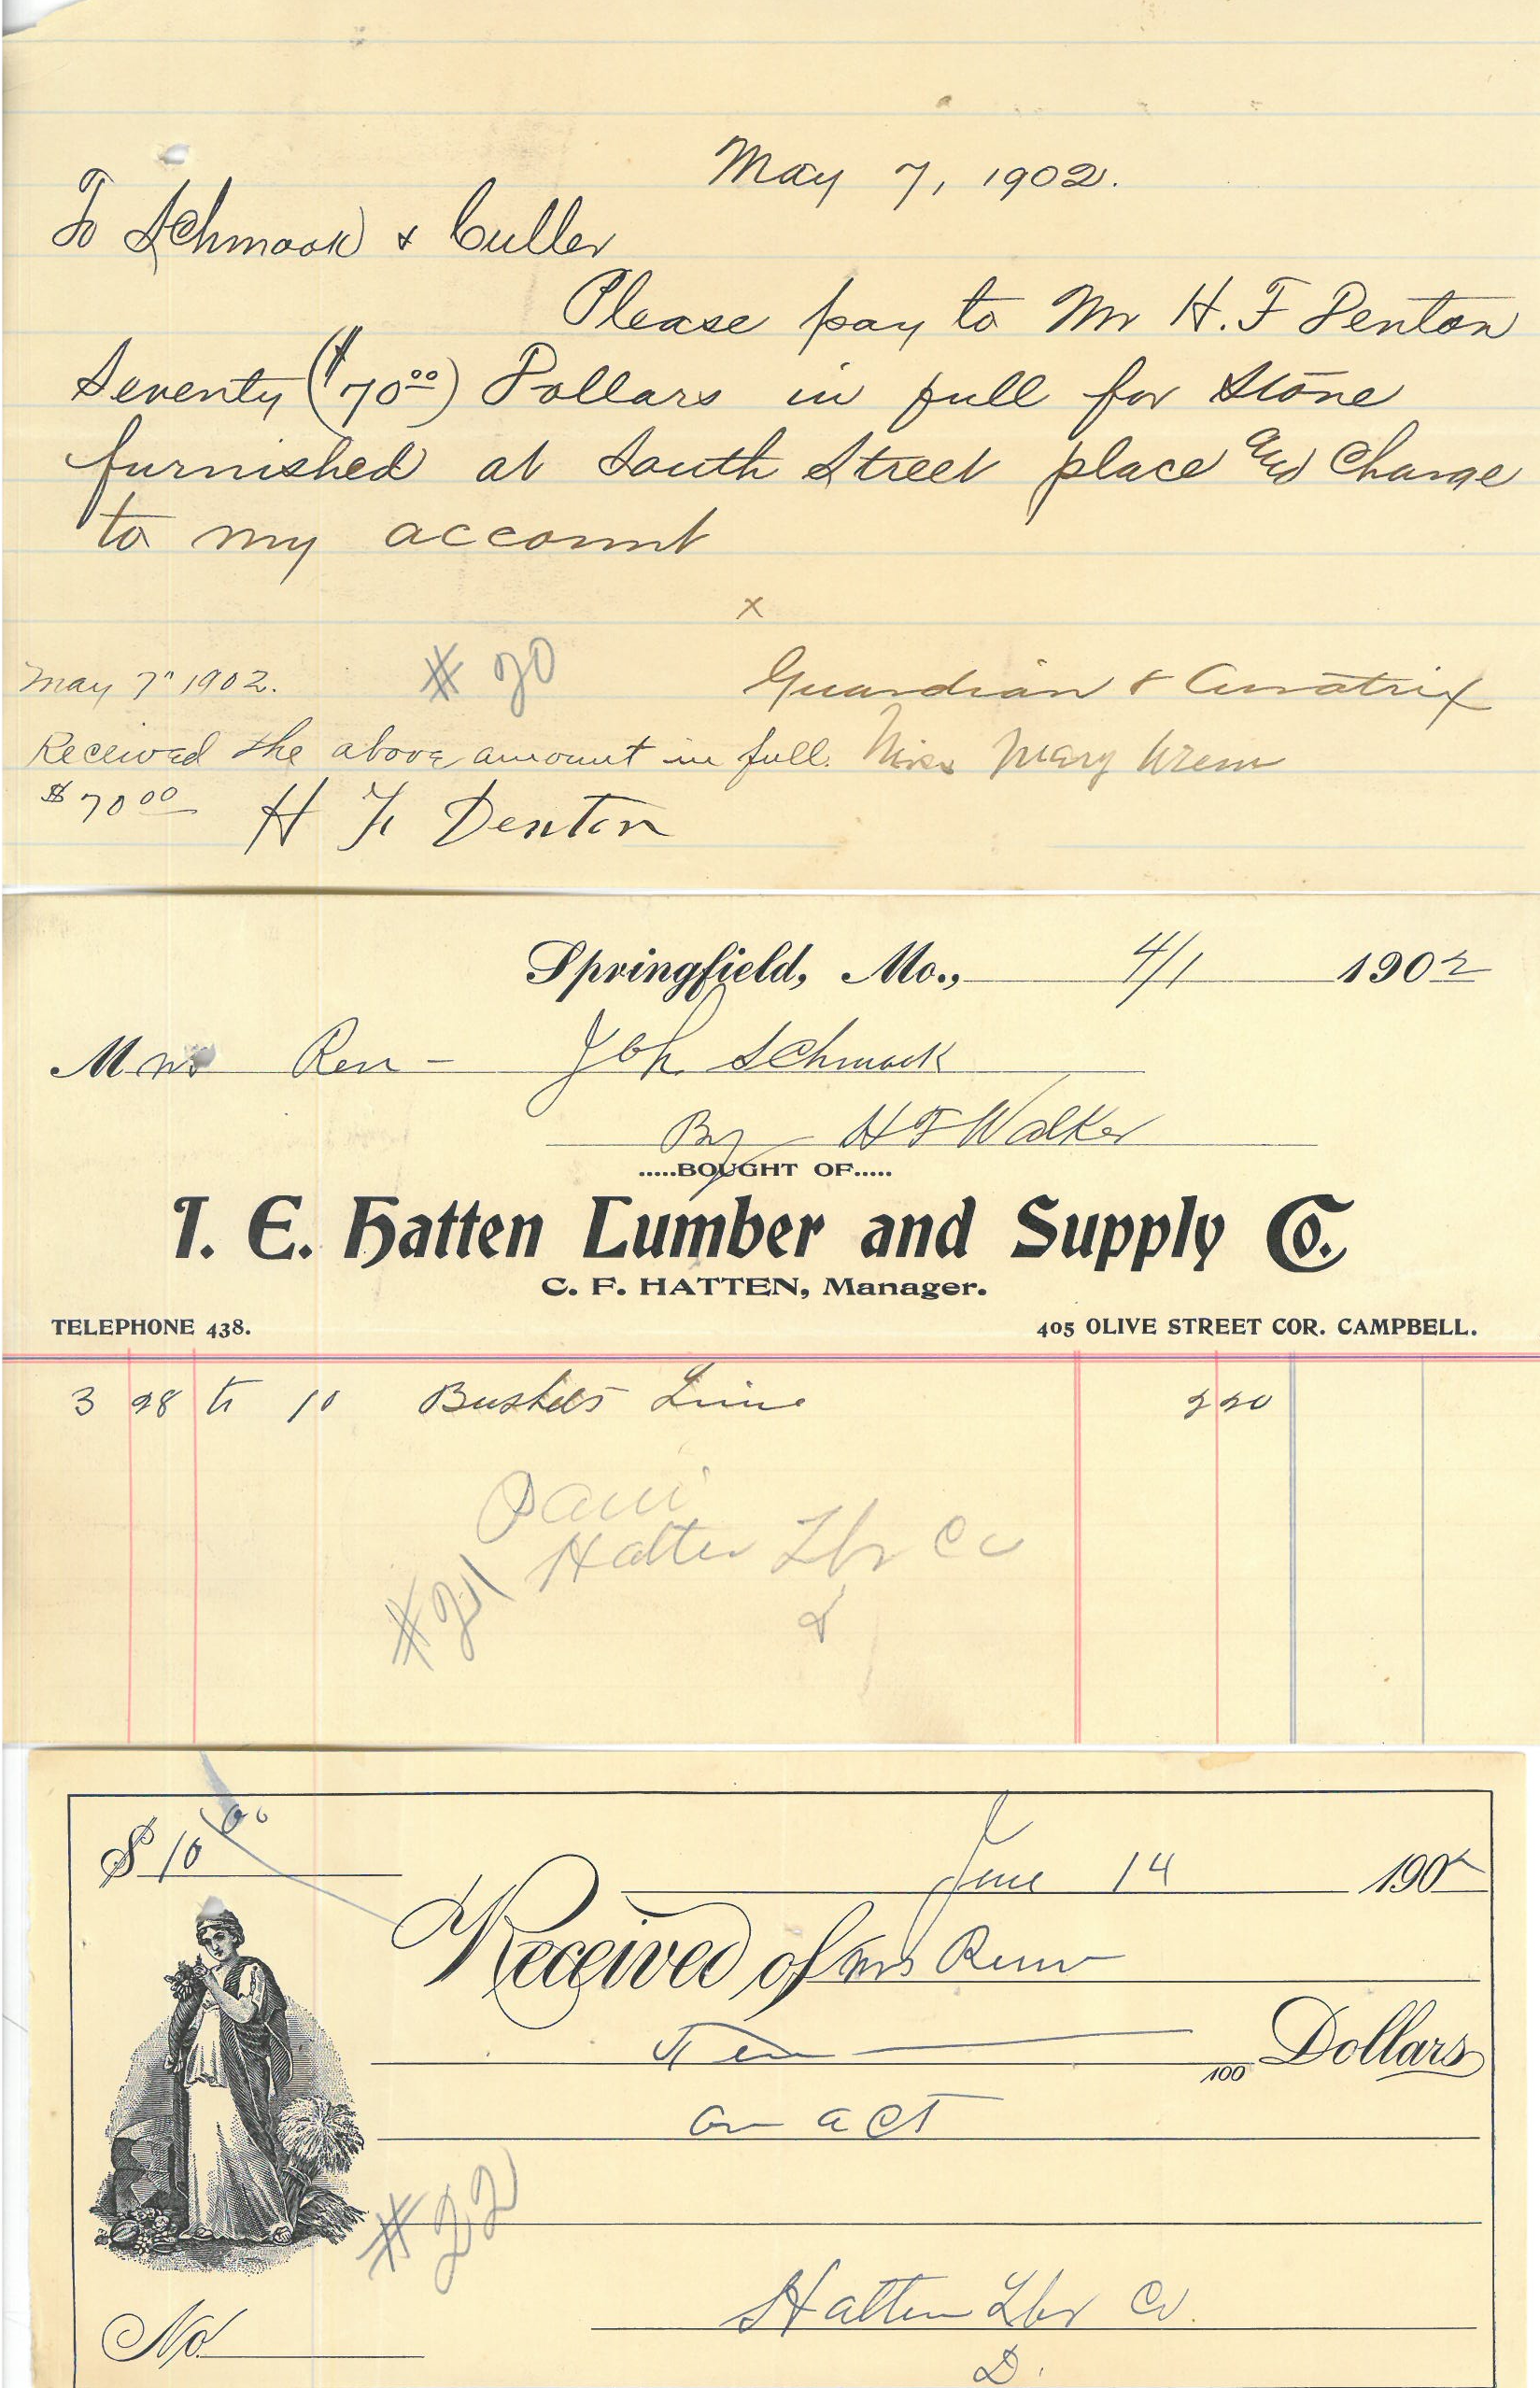 May 7, 1902.
To Schmook & Culler
Please pay to Mr H. F Denton
Seventy ($70 00) Dollars in full for Stone
furnished at South Street place and Charge
to my account
x
May 7" 1902. # 20 Guardian & Curatrix
Received the above amount in full. Mary
$70 00 H F Denton
Springfield, Mo., 4/1 1902
Mrs Ren - Joh Schmook
By H F Walker
.....BOUGHT OF.....
T. E. Hatten Lumber and Supply Co.
C. F. HATTEN, Manager.
TELEPHONE 438. 405 OLIVE STREET COR. CAMPBELL.
3 28 to 10 Bushels Lime 2 20
Hatten Lbr Co
#21
$ 10 00
June 14 1902
Received of Mrs
Ten
100 Dollars
on act
#22
Hatten Lbr Co.
No. D.